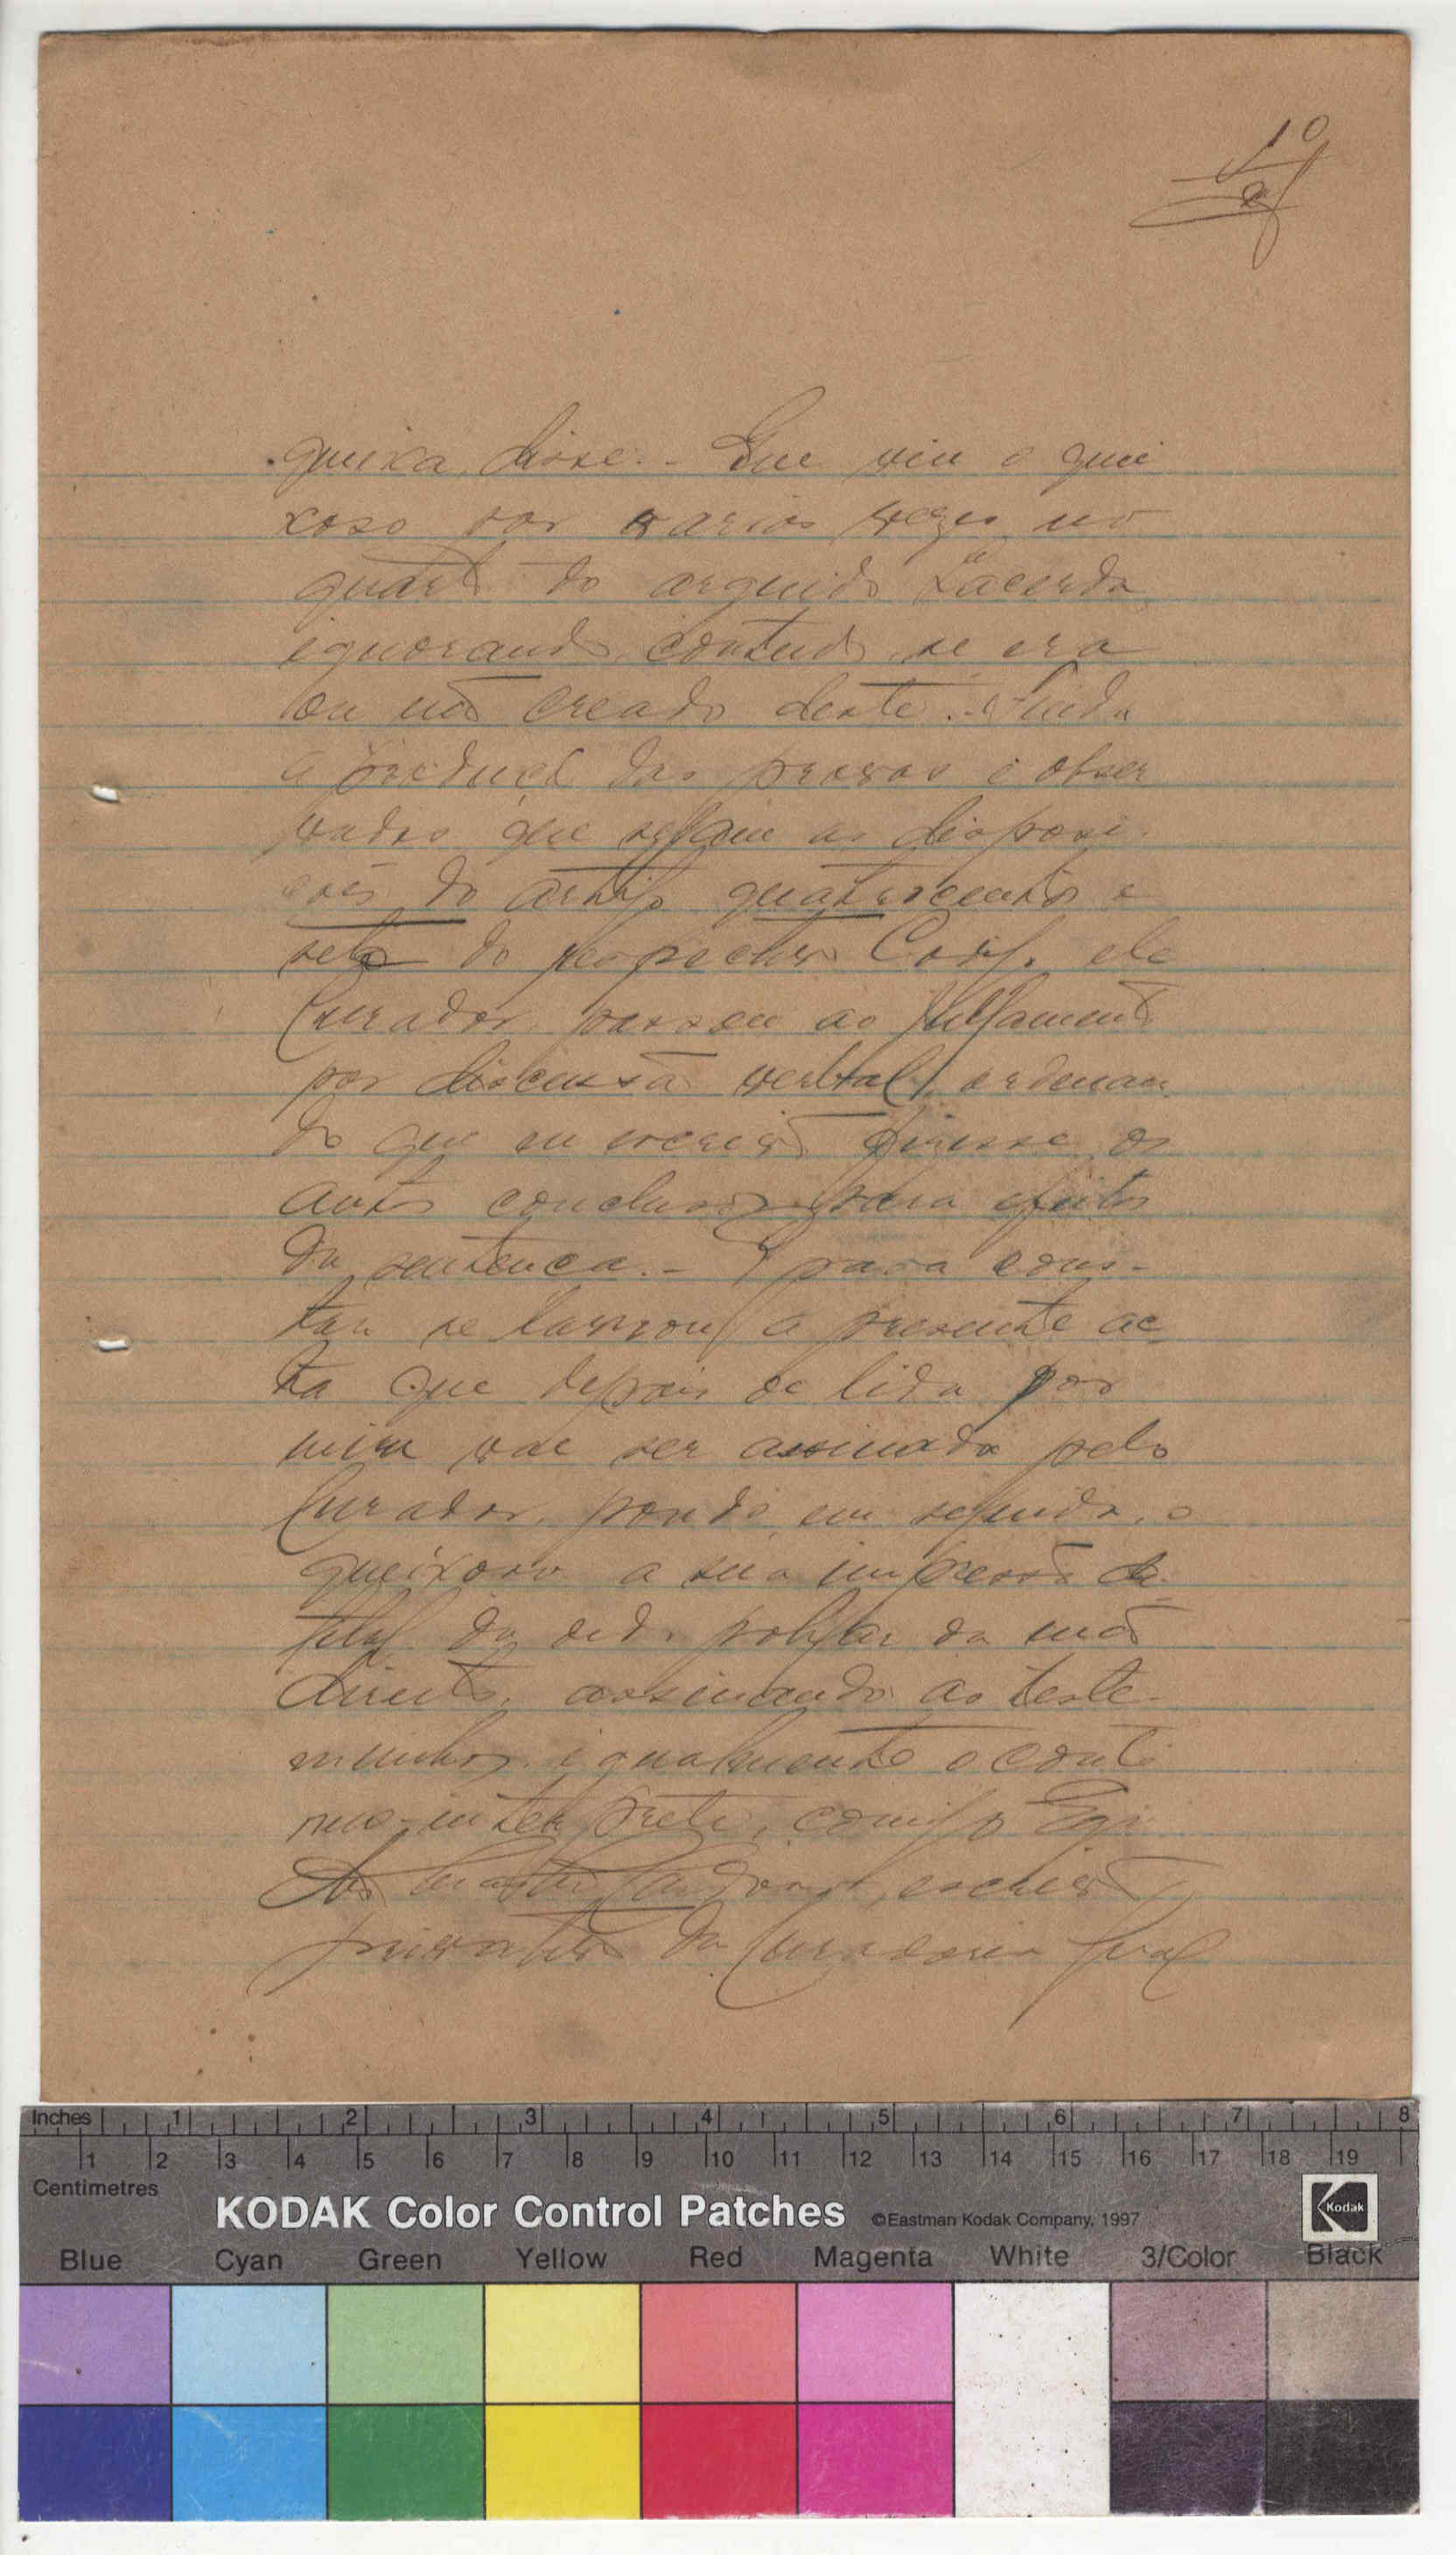 10
queixa, disse. - Que viu o quei
xoso por varias vezes no
quarto do arguido Lacerda
ignorando, contudo, se era
ou não creado deste. - Finda
a producção das provas e obser
vadas que sejam as disposi-
ções do artigo quatrocentos e
sete do respectivo Codigo, ele
Curador, passou ao julgamento
por discussão verbal, ordenan
do que eu escrivão fizesse os
autos conclusos para efeitos
da sentença. - E para cons-
tar se lavrou a presente ac-
ta que depois de lida por
mim vae ser assinada pelo
Curador, pondo, em seguida, o
queixoso a sua impressão di-
gital do dedo polegar da mão
direita, assinando as teste-
munhas, igualmente o conti
nuo-interprete, comigo
escrivão
privativo da Curadoria Geral
Inches 1 2 3 4 5 6 7 8
1 2 3 4 5 6 7 8 9 10 11 12 13 14 15 16 17 18 19
Centimetres
KODAK Color Control Patches ©Eastman Kodak Company, 1997 Kodak
Blue Cyan Green Yellow Red Magenta White 3/Color Black